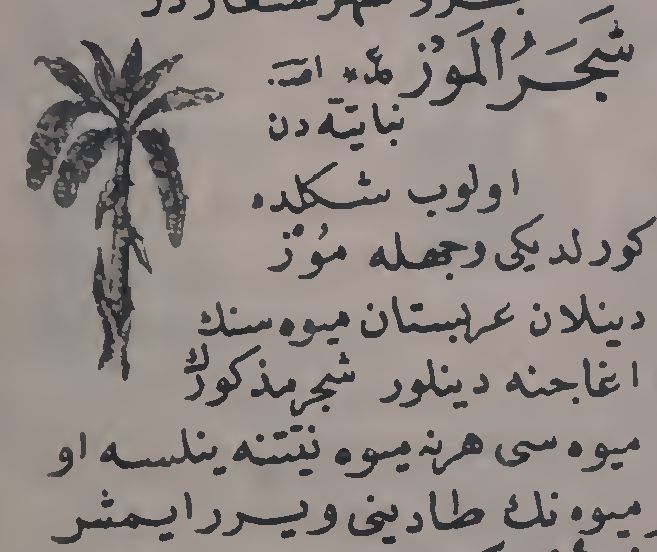 شَجَرُ الْمَوْز
نباتیّه دن
اولوب شكلده
كورلدیكی وجهله مُوْز
دینلان عربستان میوه سنك
اغاجنه دینلور شجر مذكورك
میوه سی هرنه میوه نیّتنه ینلسه او
میوه نك طادینی ویرر ایمش